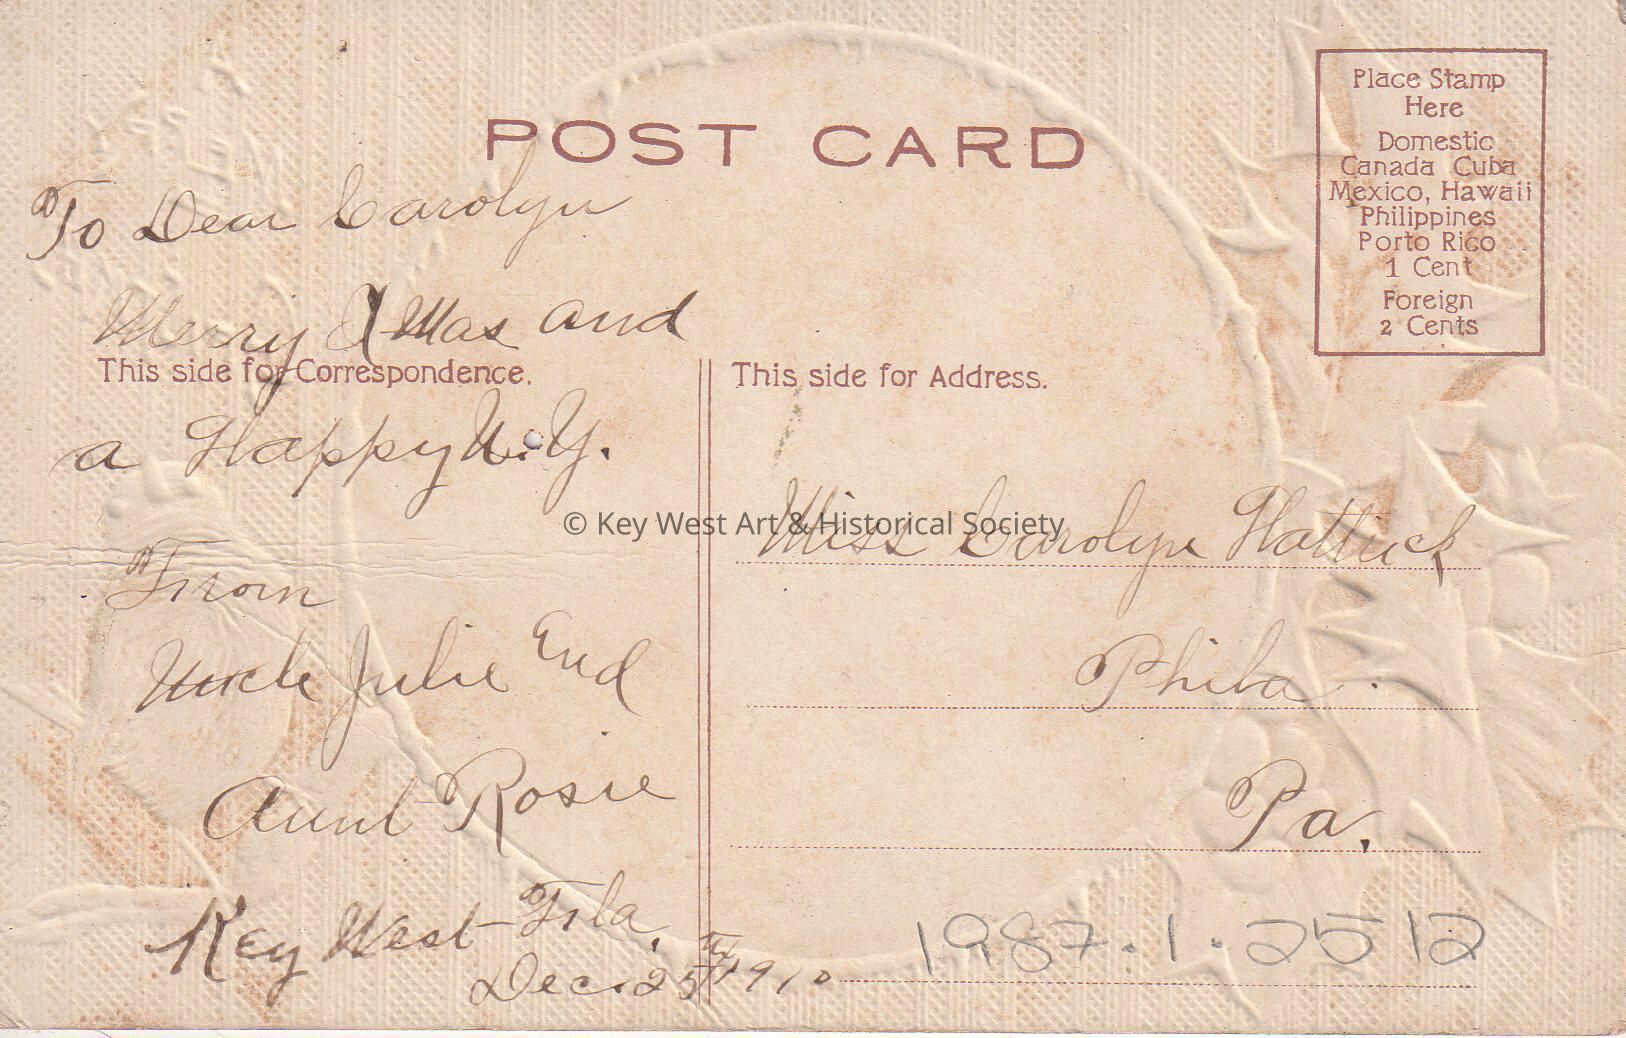 POST CARD
Place Stamp
Here
Domestic
Canada Cuba
Mexico, Hawaii
Philippines
Porto Rico
1 Cent
Foreign
2 Cents
To Dear Carolyn
Merry X Mas and
This side for Correspondence.
a Happy N.Y.
From
Uncle Julie End
Aunt Rosie
Key West Fla,
Dec. 25th 1910
This side for Address.
Miss Carolyn
Phila
Pa,
1987.1.2512
© Key West Art & Historical Society